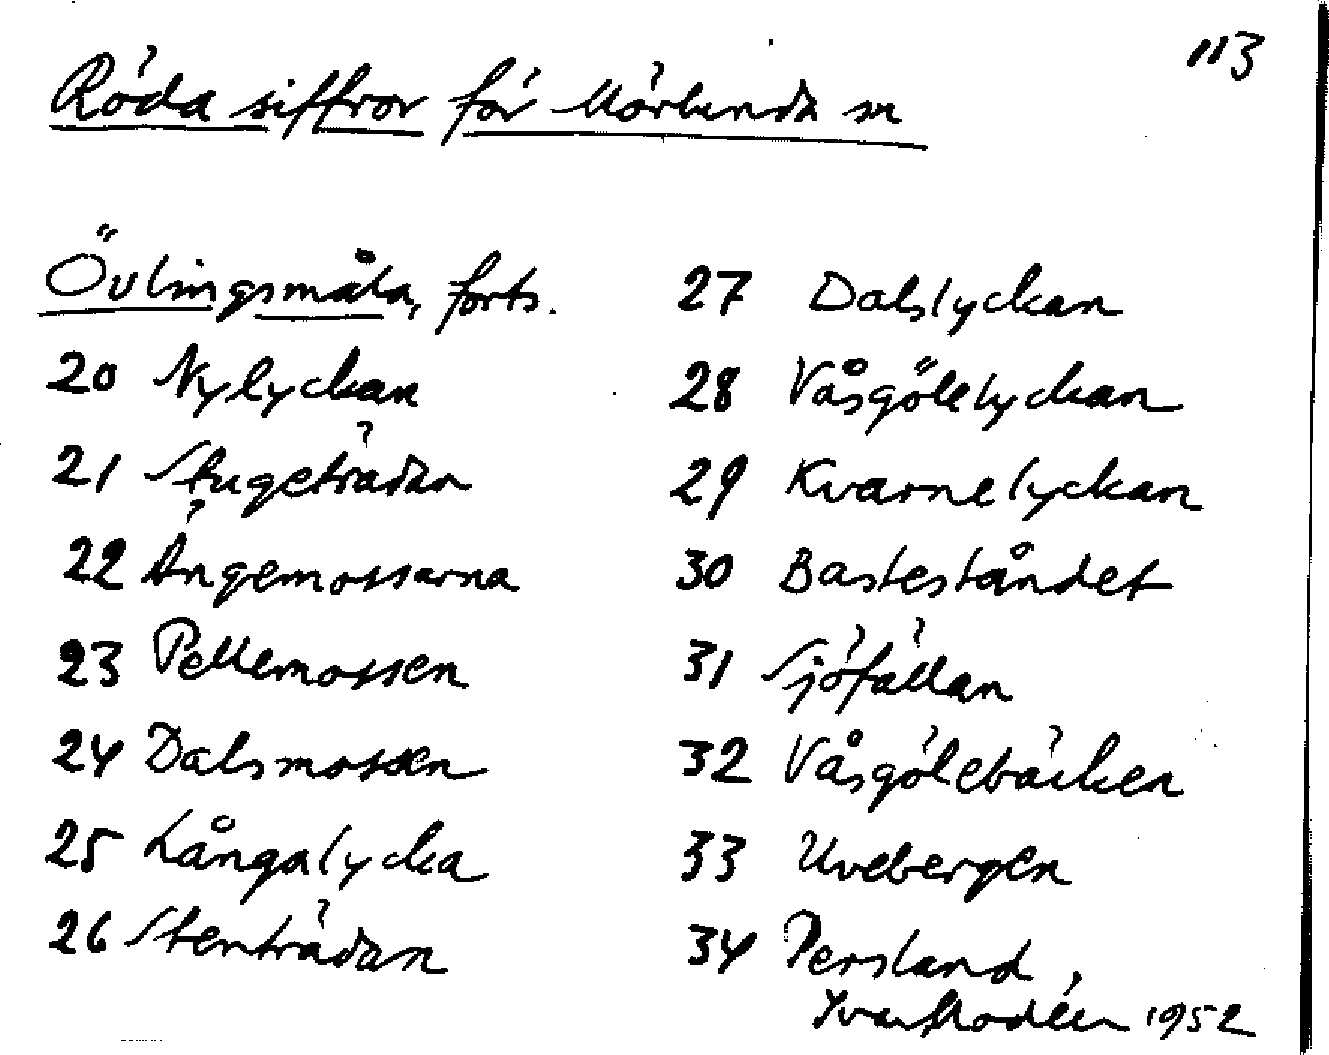 113
Röda siffror för Mörlunda sn
Övlingsmåla, forts.
20 Nylyckan
21 Stugeträdan
22 Ängemossarna
23 Pellemossen
24 Dalsmossen
25 Långalycka
26 Stenträdan
27 Dalslyckan
28 Våsgölelyckan
29 Kvarnelyckan
30 Basteståndet
31 Sjöfällan
32 Våsgölebäcken
33 Uvebergen
34 Persland
Yvar Modéer 1952